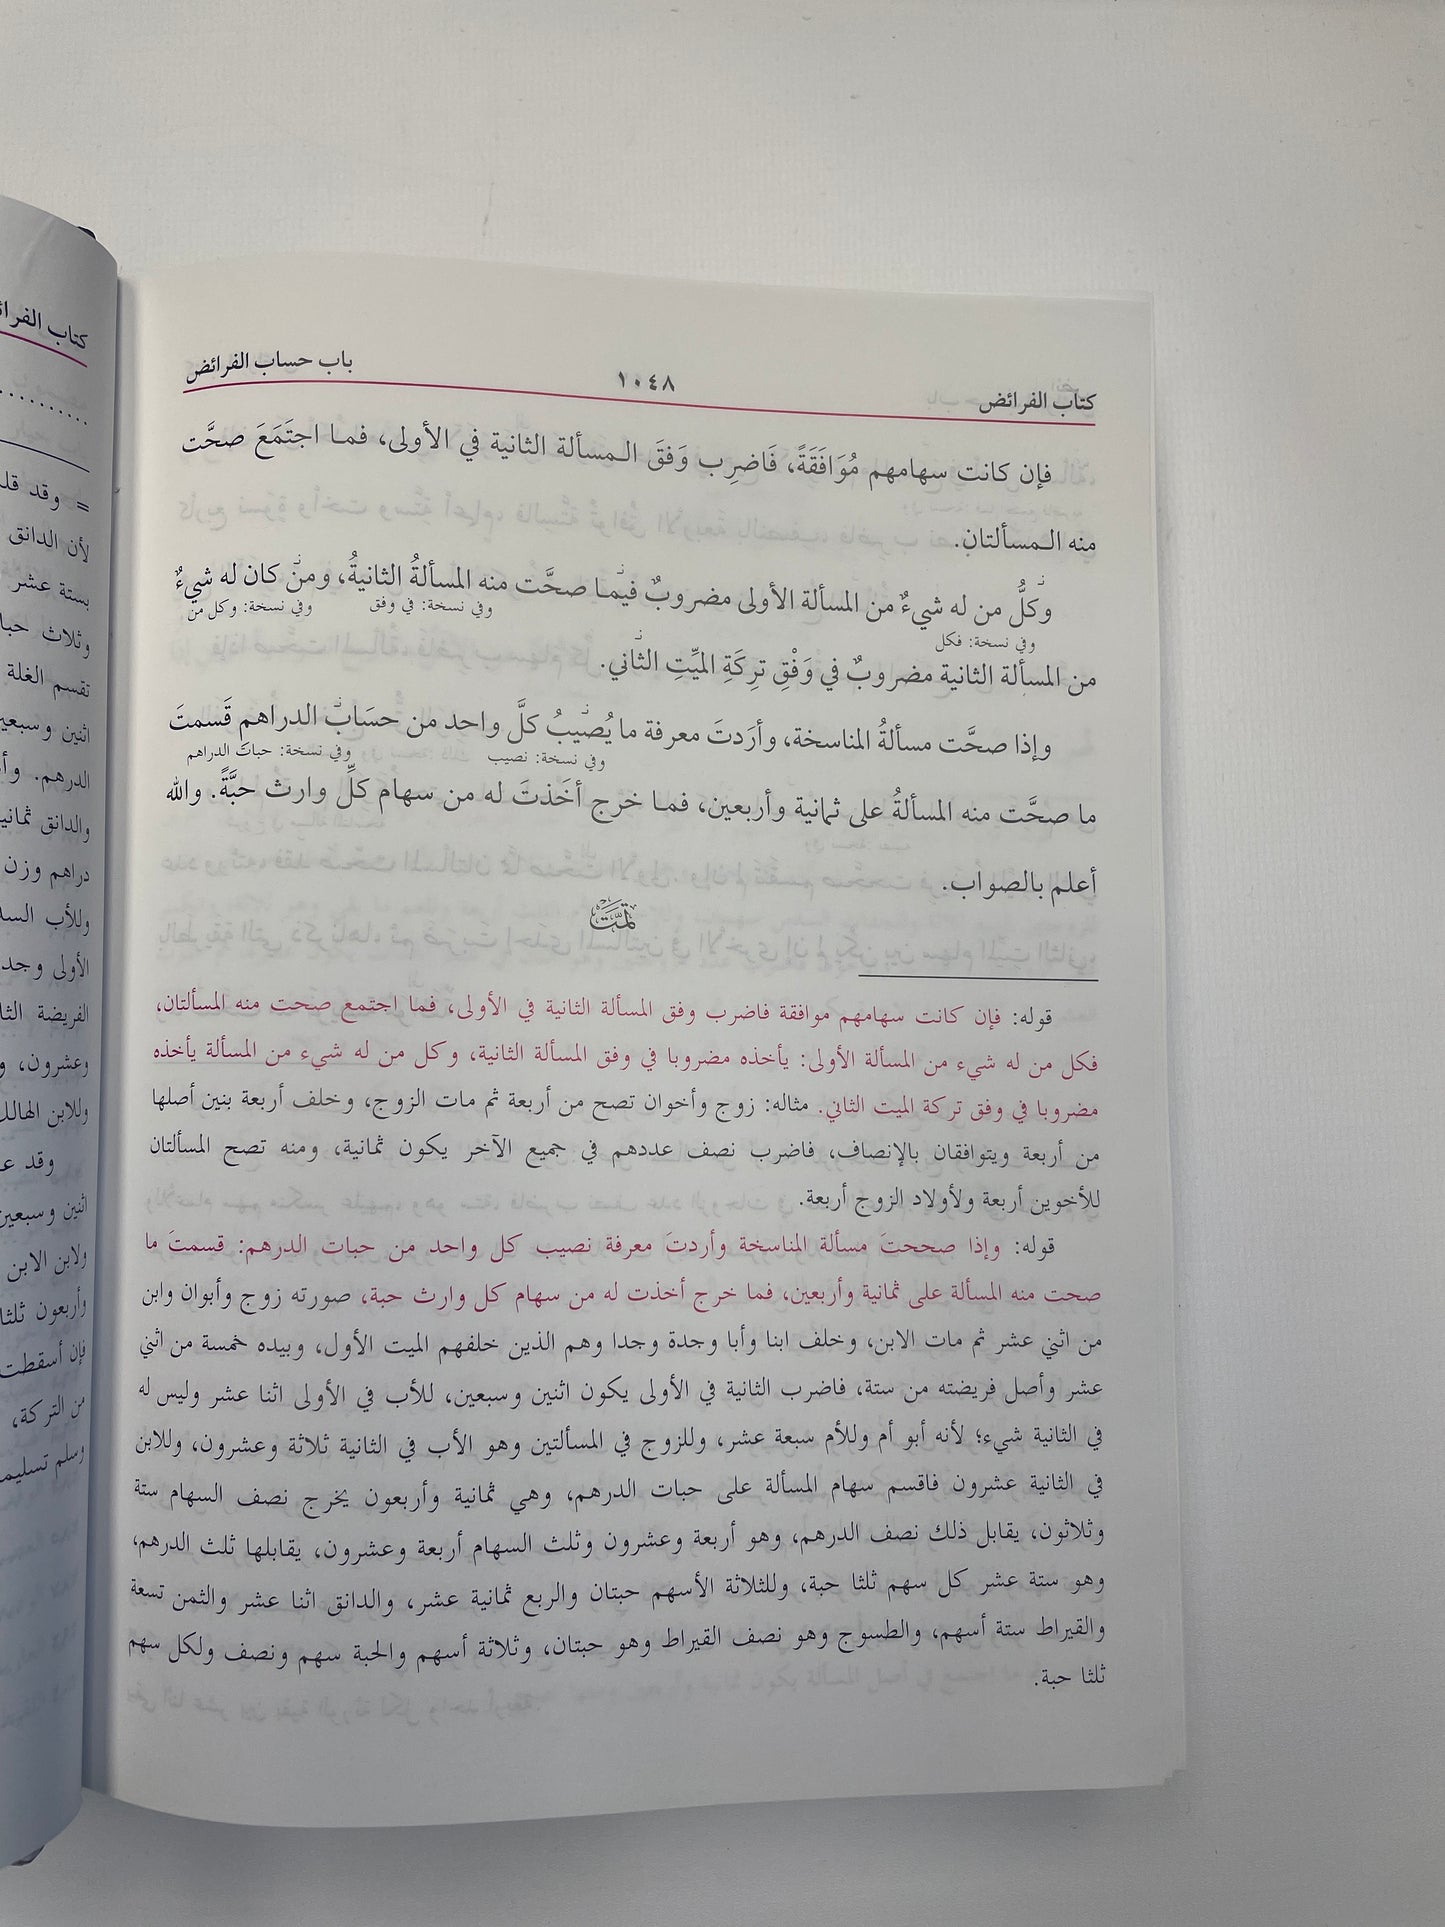 كتاب الفرائض
١٠٤٨
باب حساب الفرائض
فإن كانت سهامهم مُوَافَقَةً، فَاضرِب وَفقَ المسألة الثانية في الأولى، فما اجتَمَعَ صحَّت
منه المسألتان.
وكلُّ من له شيءٌ من المسألة الأولى مضروبٌ فيما صحَّت منه المسألةُ الثانيةُ، ومن كان له شيءٌ
وفي نسخة: فكل
وفي نسخة: في وفق
وفي نسخة: وكل من
من المسألة الثانية مضروبٌ في وَفْقِ تَرِكَةِ الميِّتِ الثاني.
وإذا صحَّت مسألةُ المناسخة، وأرَدتَ معرفة ما يُصيبُ كلَّ واحد من حسَاب الدراهم قَسمتَ
وفي نسخة: نصيب
وفي نسخة: حباتَ الدراهم
ما صحَّت منه المسألةُ على ثمانية وأربعين، فما خرج أخَذتَ له من سهام كلِّ وارث حبَّةً. والله
أعلم بالصواب.
تمَّت
قوله: فإن كانت سهامهم موافقة فاضرب وفق المسألة الثانية في الأولى، فما اجتمع صحت منه المسألتان،
فكل من له شيء من المسألة الأولى: يأخذه مضروبا في وفق المسألة الثانية، وكل من له شيء من المسألة يأخذه
مضروبا في وفق تركة الميت الثاني. مثاله: زوج وأخوان تصح من أربعة ثم مات الزوج، وخلف أربعة بنين أصلها
من أربعة ويتوافقان بالإنصاف، فاضرب نصف عددهم في جميع الآخر يكون ثمانية، ومنه تصح المسألتان
للأخوين أربعة ولأولاد الزوج أربعة.
قوله: وإذا صححتَ مسألة المناسخة وأردتَ معرفة نصيب كل واحد من حبات الدرهم: قسمتَ ما
صحت منه المسألة على ثمانية وأربعين، فما خرج أخذت له من سهام كل وارث حبة، صورته زوج وأبوان وابن
من اثني عشر ثم مات الابن، وخلف ابنا وأبا وجدة وجدا وهم الذين خلفهم الميت الأول، وبيده خمسة من اثني
عشر وأصل فريضته من ستة، فاضرب الثانية في الأولى يكون اثنين وسبعين، للأب في الأولى اثنا عشر وليس له
في الثانية شيء؛ لأنه أبو أم وللأم سبعة عشر، وللزوج في المسألتين وهو الأب في الثانية ثلاثة وعشرون، وللابن
في الثانية عشرون فاقسم سهام المسألة على حبات الدرهم، وهي ثمانية وأربعون يخرج نصف السهام ستة
وثلاثون، يقابل ذلك نصف الدرهم، وهو أربعة وعشرون وثلث السهام أربعة وعشرون، يقابلها ثلث الدرهم،
وهو ستة عشر كل سهم ثلثا حبة، وللثلاثة الأسهم حبتان والربع ثمانية عشر، والدانق اثنا عشر والثمن تسعة
والقيراط ستة أسهم، والطسوج وهو نصف القيراط وهو حبتان، وثلاثة أسهم والحبة سهم ونصف ولكل سهم
ثلثا حبة.
كتاب
= وقد
لأن الدانق
بستة عشر
وثلاث
تقسم الغلة
اثنين
الدرهم.
والدانق
دراهم وزن
وللأب
الأولى
الفريضة
وعشرون،
وللابن
وقد
اثنين
ولابن الابن
وأربعون
فإن أسقطت
من التركة،
وسلم